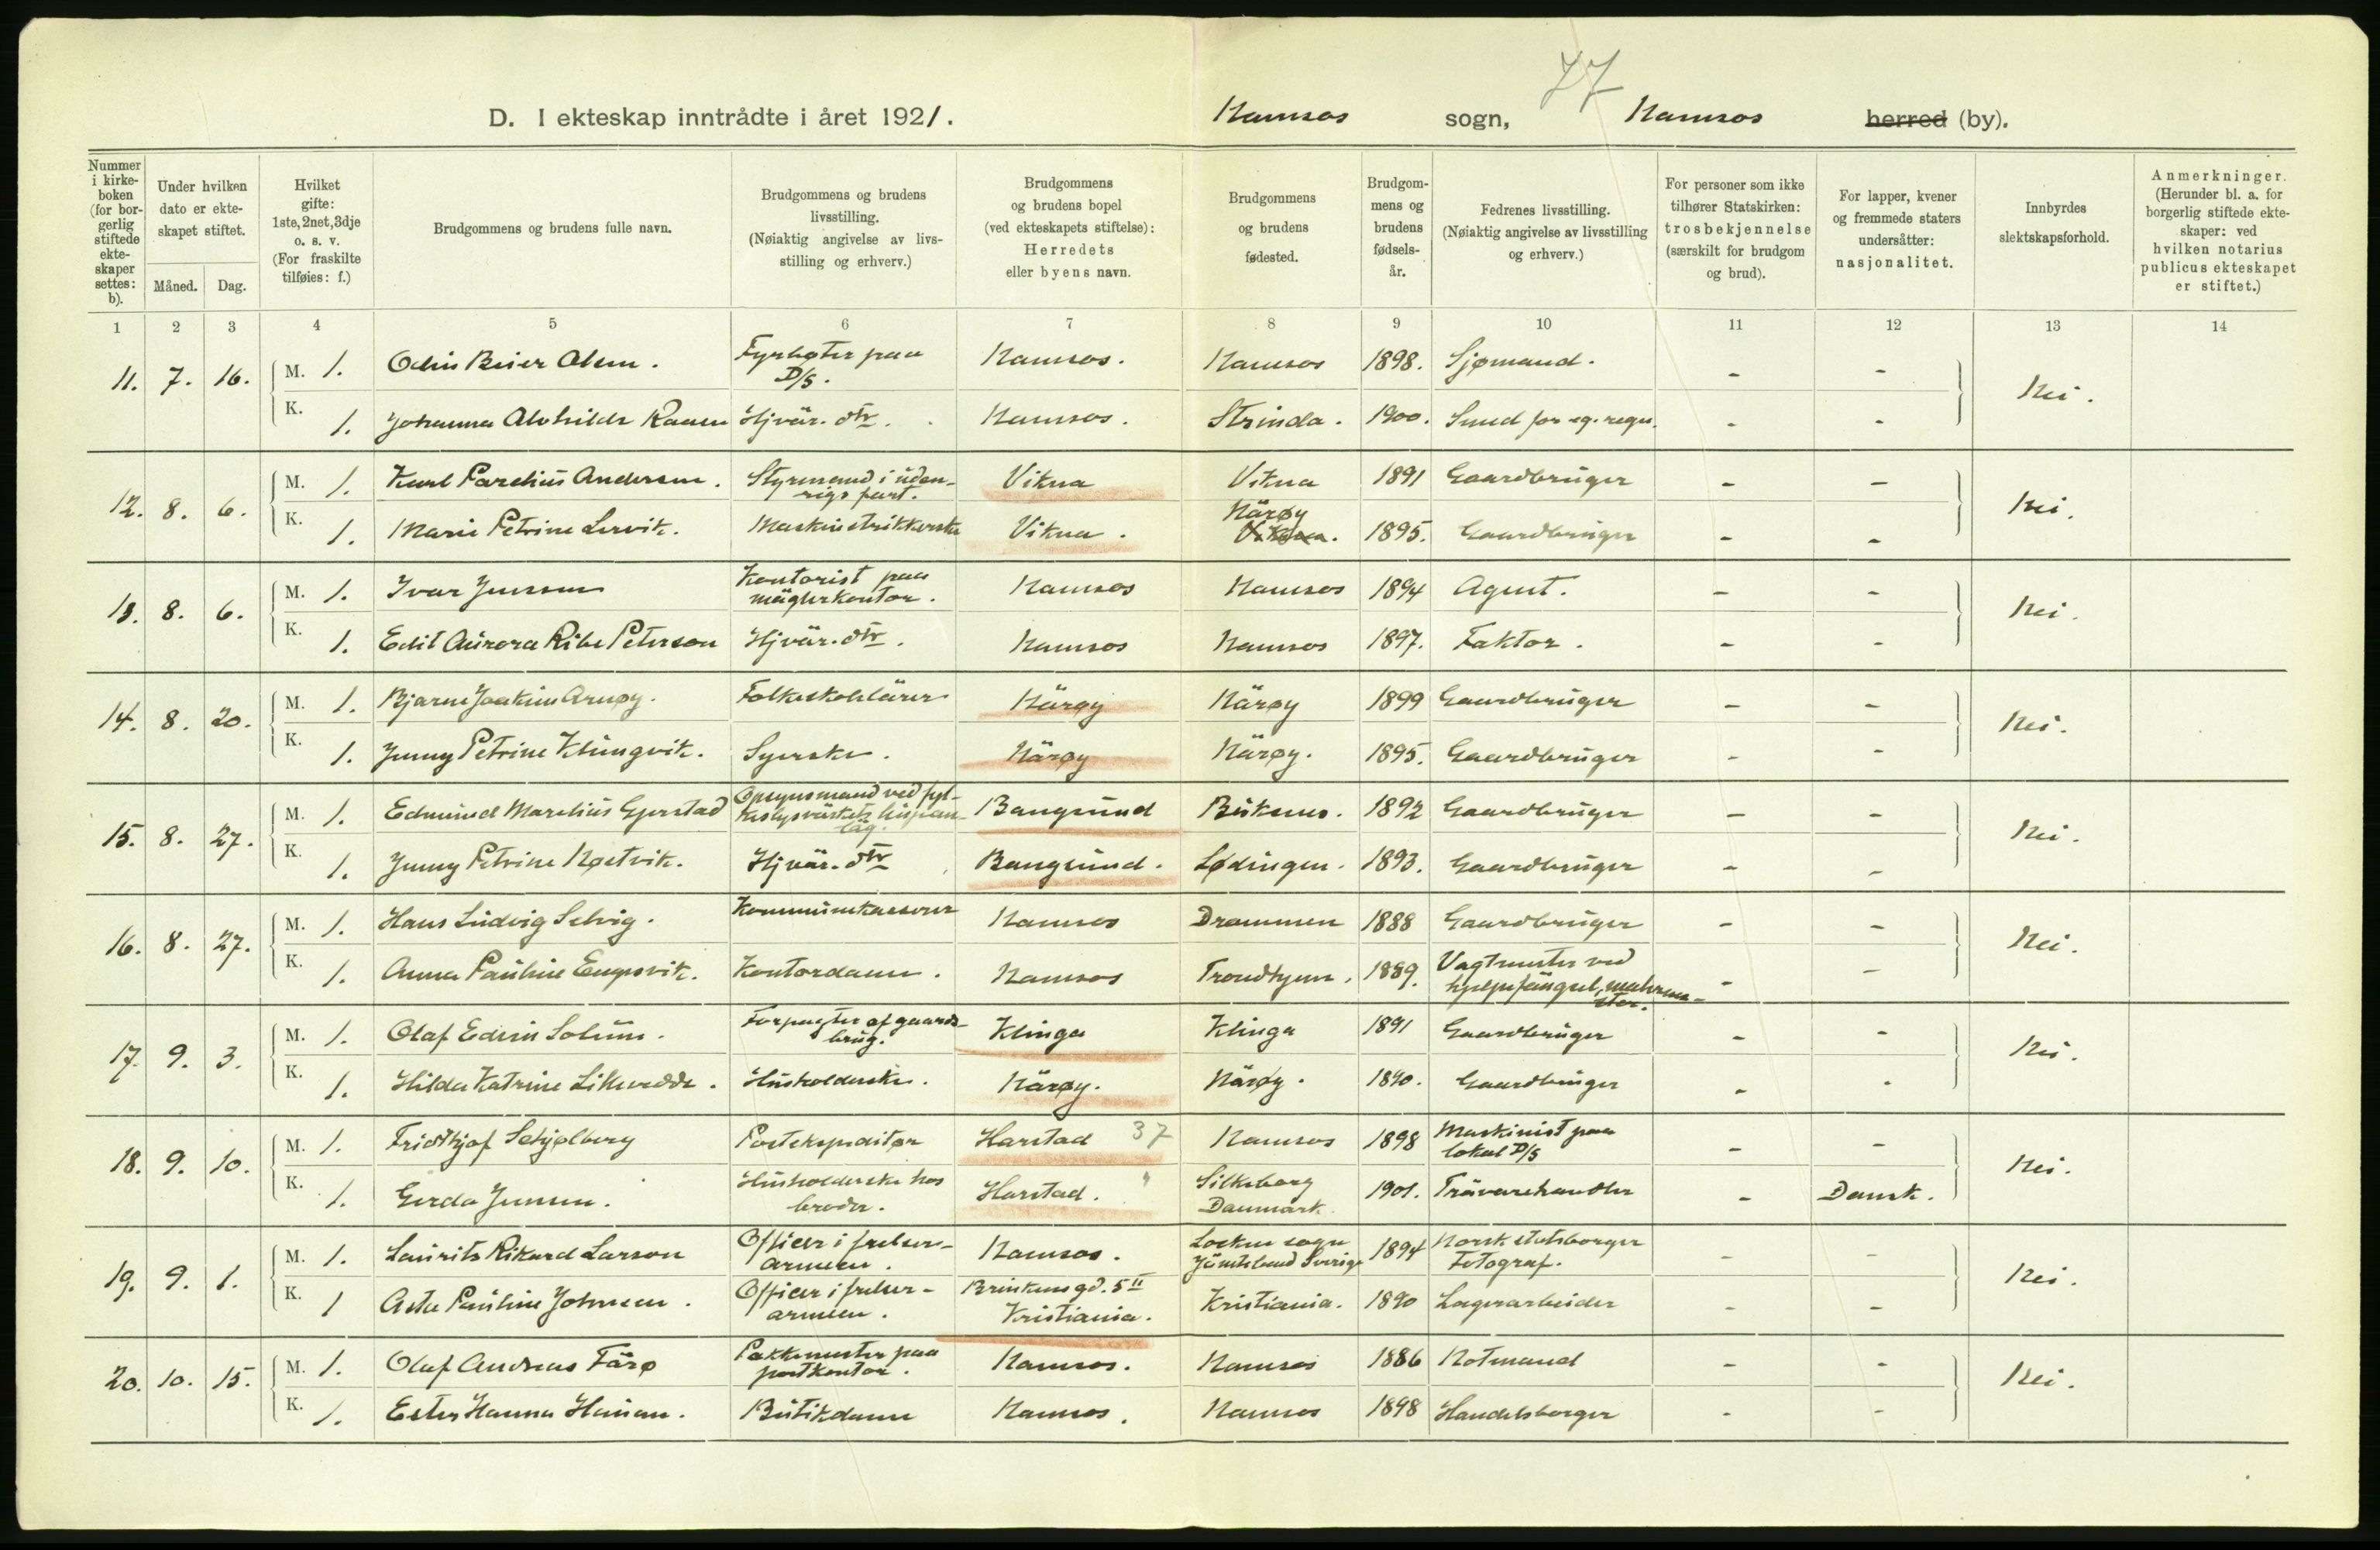 77
D. I ekteskap inntrådte i året 1921. Namsos sogn, Namsos herred (by).
Nummer i kirke-boken (for bor-gerlig stiftede ekte-skaper settes: b).
Under hvilken dato er ekte-skapet stiftet.
Måned. Dag.
Hvilket gifte: 1ste, 2net, 3dje o. s. v. (For fraskilte tilføies: f.)
Brudgommens og brudens fulle navn.
Brudgommens og brudens livsstilling. (Nøiaktig angivelse av livs-stilling og erhverv.)
Brudgommens og brudens bopel (ved ekteskapets stiftelse): Herredets eller byens navn.
Brudgommens og brudens fødested.
Brudgom-mens og brudens fødsels-år.
Fedrenes livsstilling. (Nøiaktig angivelse av livsstilling og erhverv.)
For personer som ikke tilhører Statskirken: trosbekjennelse (særskilt for brudgom og brud).
For lapper, kvener og fremmede staters undersåtter: nasjonalitet.
Innbyrdes slektskapsforhold.
Anmerkninger. (Herunder bl. a. for borgerlig stiftede ekte-skaper: ved hvilken notarius publicus ekteskapet er stiftet.)
1 2 3 4 5 6 7 8 9 10 11 12 13 14
11. 7. 16. M. 1. Odin Beier Olsen. Fyrbøter paa D/S. Namsos. Namsos 1898. Sjømand. - - Nei.
K. 1. Johanna Alvhilde Raaen Hjvär. dtr. Namsos. Strinda. 1900. Smed for eg. regn. - -
12. 8. 6. M. 1. Karl Parelius Andersen. Styrmand i uden-rigs fart. Vikna Vikna 1891 Gaardbruger - - Nei.
K. 1. Marie Petrine Lervik. Maskinstrikkerske Vikna. Närøy Vikna. 1895. Gaardbruger - -
13. 8. 6. M. 1. Ivar Jenssen Kontorist paa mäglerkontor. Namsos Namsos 1894 Agent. - - Nei.
K. 1. Edit Aurora Ribe Peterson Hjvär. dtr. Namsos Namsos 1897. Faktor. - -
14. 8. 20. M. 1. Bjarne Joakim Arnøy. Folkeskolelärer Närøy Närøy 1899 Gaardbruger - - Nei.
K. 1. Jenny Petrine Klungvik. Syerske. Närøy Närøy. 1895. Gaardbruger - -
15. 8. 27. M. 1. Edmund Marelius Gjerstad Opsynsmand ved fyl- Bangsund 1892 Gaardbruger - - Nei.
K. 1. Jenny Petrine Nøstvik. Hjvär. dtr Bangsund. Lødingen. 1893. Gaardbruger - -
16. 8. 27. M. 1. Hans Ludvig Selvig. Kommunekasserer Namsos Drammen 1888 Gaardbruger - - Nei.
K. 1. Anna Pauline Engesvik. Kontordame. Namsos Trondhjem. 1889. Vagtmester ved hjelpefängsel, malerme-ster. - -
17. 9. 3. M. 1. Olaf Edvin Solum. Forpagter af gaards-brug. Klinga Klinga 1891 Gaardbruger - - Nei.
K. 1. Hilda Katrine Husholderske. Närøy. Närøy. 1890. Gaardbruger - -
18. 9. 10. M. 1. Fridthjof Schjølberg Postekspeditør Harstad 37 Namsos 1898 Maskinist paa lokal D/S - - Nei.
K. 1. Gerda Jensen. Husholderske hos broder. Harstad. " Silkeborg Danmark. 1901. Trävarehandler - Dansk.
19. 9. 1. M. 1. Laurits Rikard Larson Officer i frelses-armeen. Namsos. Lockne sogn Jämtland Sverige 1894 Norsk statsborger Fotograf. - - Nei.
K. 1 Asta Pauline Johnsen. Officer i frelses-armeen. Brinkens gd. 5 II Kristiania. Kristiania. 1890 Lagerarbeider - -
20. 10. 15. M. 1. Olaf Andreas Färø Pakkemester paa postkontor. Namsos. Namsos 1886 Notmand - - Nei.
K. 1. Ester Hanna Hanan. Butikdame Namsos. Namsos 1898 Handelsborger - -